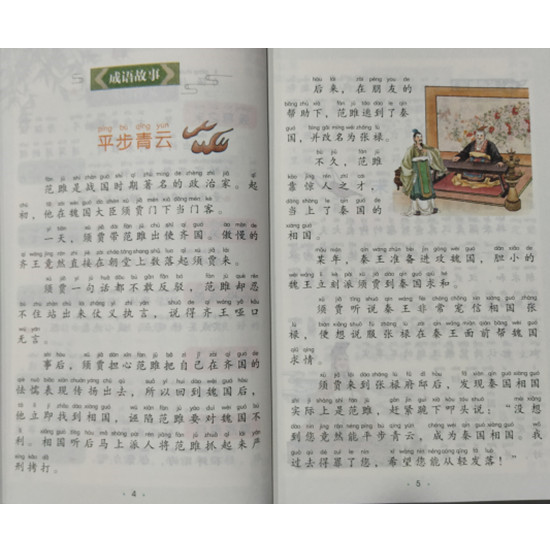 成语故事
píng bù qīng yún
平步青云
范雎是战国时期著名的政治家。起
初，他在魏国大臣须贾门下当门客。
一天，须贾带范雎出使齐国。傲慢的
齐王竟然直接在朝堂上数落起须贾来。
须贾一句话都不敢反驳，范雎却忍
不住站出来仗义执言，说得齐王哑口
无言。
事后，须贾担心范雎把自己在齐国的
怯懦表现传扬出去，所以回到魏国后，
他立即找到相国，诬陷范雎要对魏国不
利。相国听后马上派人将范雎抓起来严
刑拷打。
·4·
后来，在朋友的
帮助下，范雎逃到了秦
国，并改名为张禄。
不久，范雎
靠惊人之才，
当上了秦国的
相国。
某年，秦王准备进攻魏国，胆小的
魏王立刻派须贾到秦国求和。
须贾听说秦王非常宠信相国张
禄，便想说服张禄在秦王面前替魏国
求情。
须贾来到张禄府邸后，发现秦国相国
实际上是范雎，赶紧跪下叩头说：“没想
到您竟然能平步青云，成为秦国相国。我
过去得罪了您，希望您能从轻发落！”
·5·